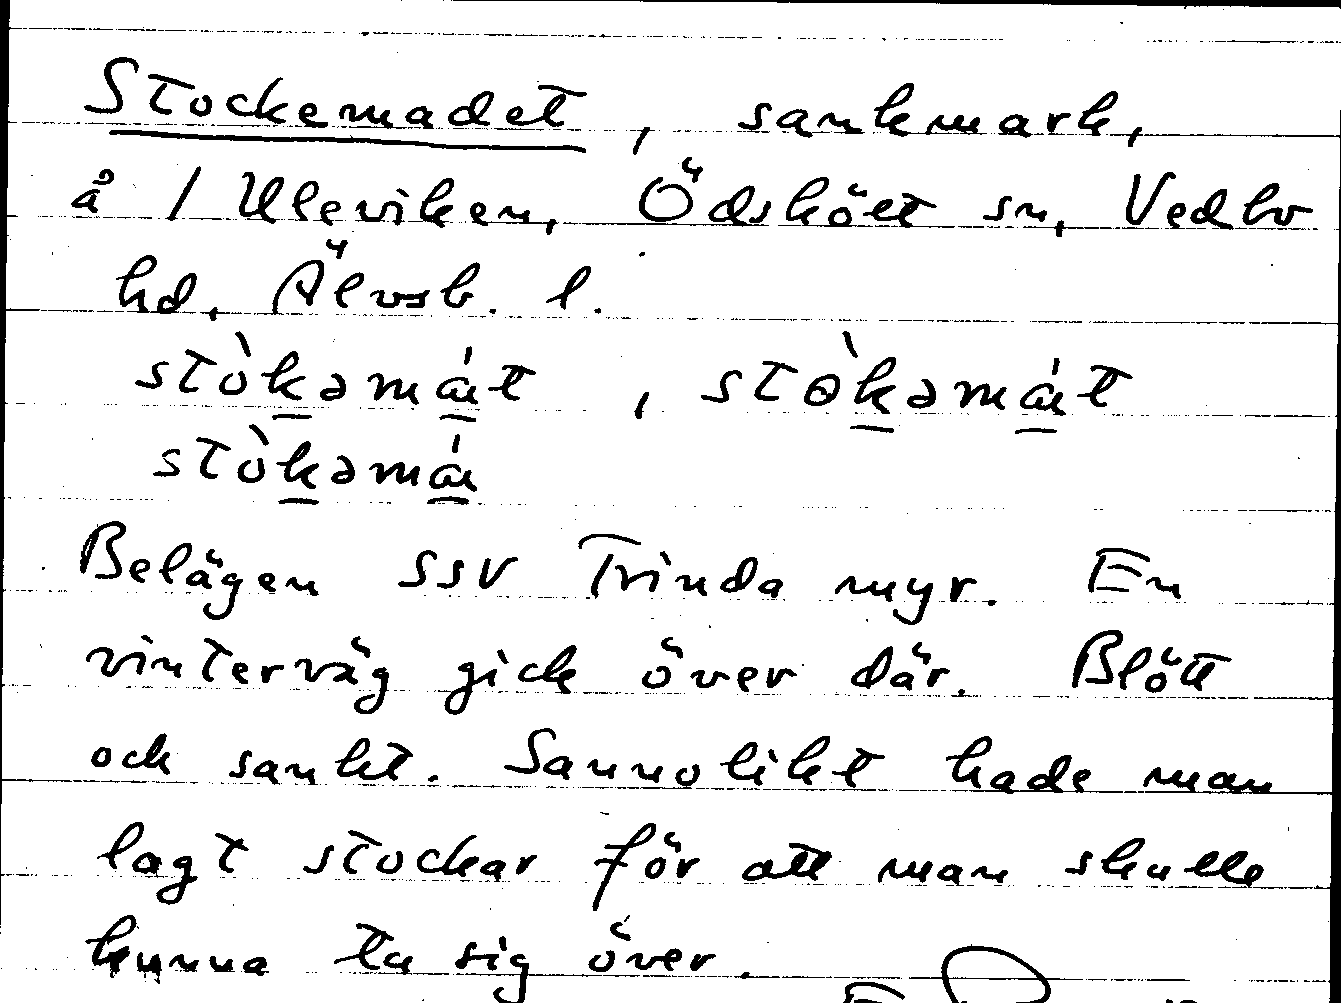 Stockemadet, sankmark,
å / Uleviken, Ödskölt sn, Vedbo
hd, Älvsb. l.
stòkəmát, stòkəmát
stòkəmá
Belägen SSV Trinda myr. En
vinterväg gick över där. Blött
och sankt. Sannolikt hade man
lagt stockar för att man skulle
kunna ta sig över.